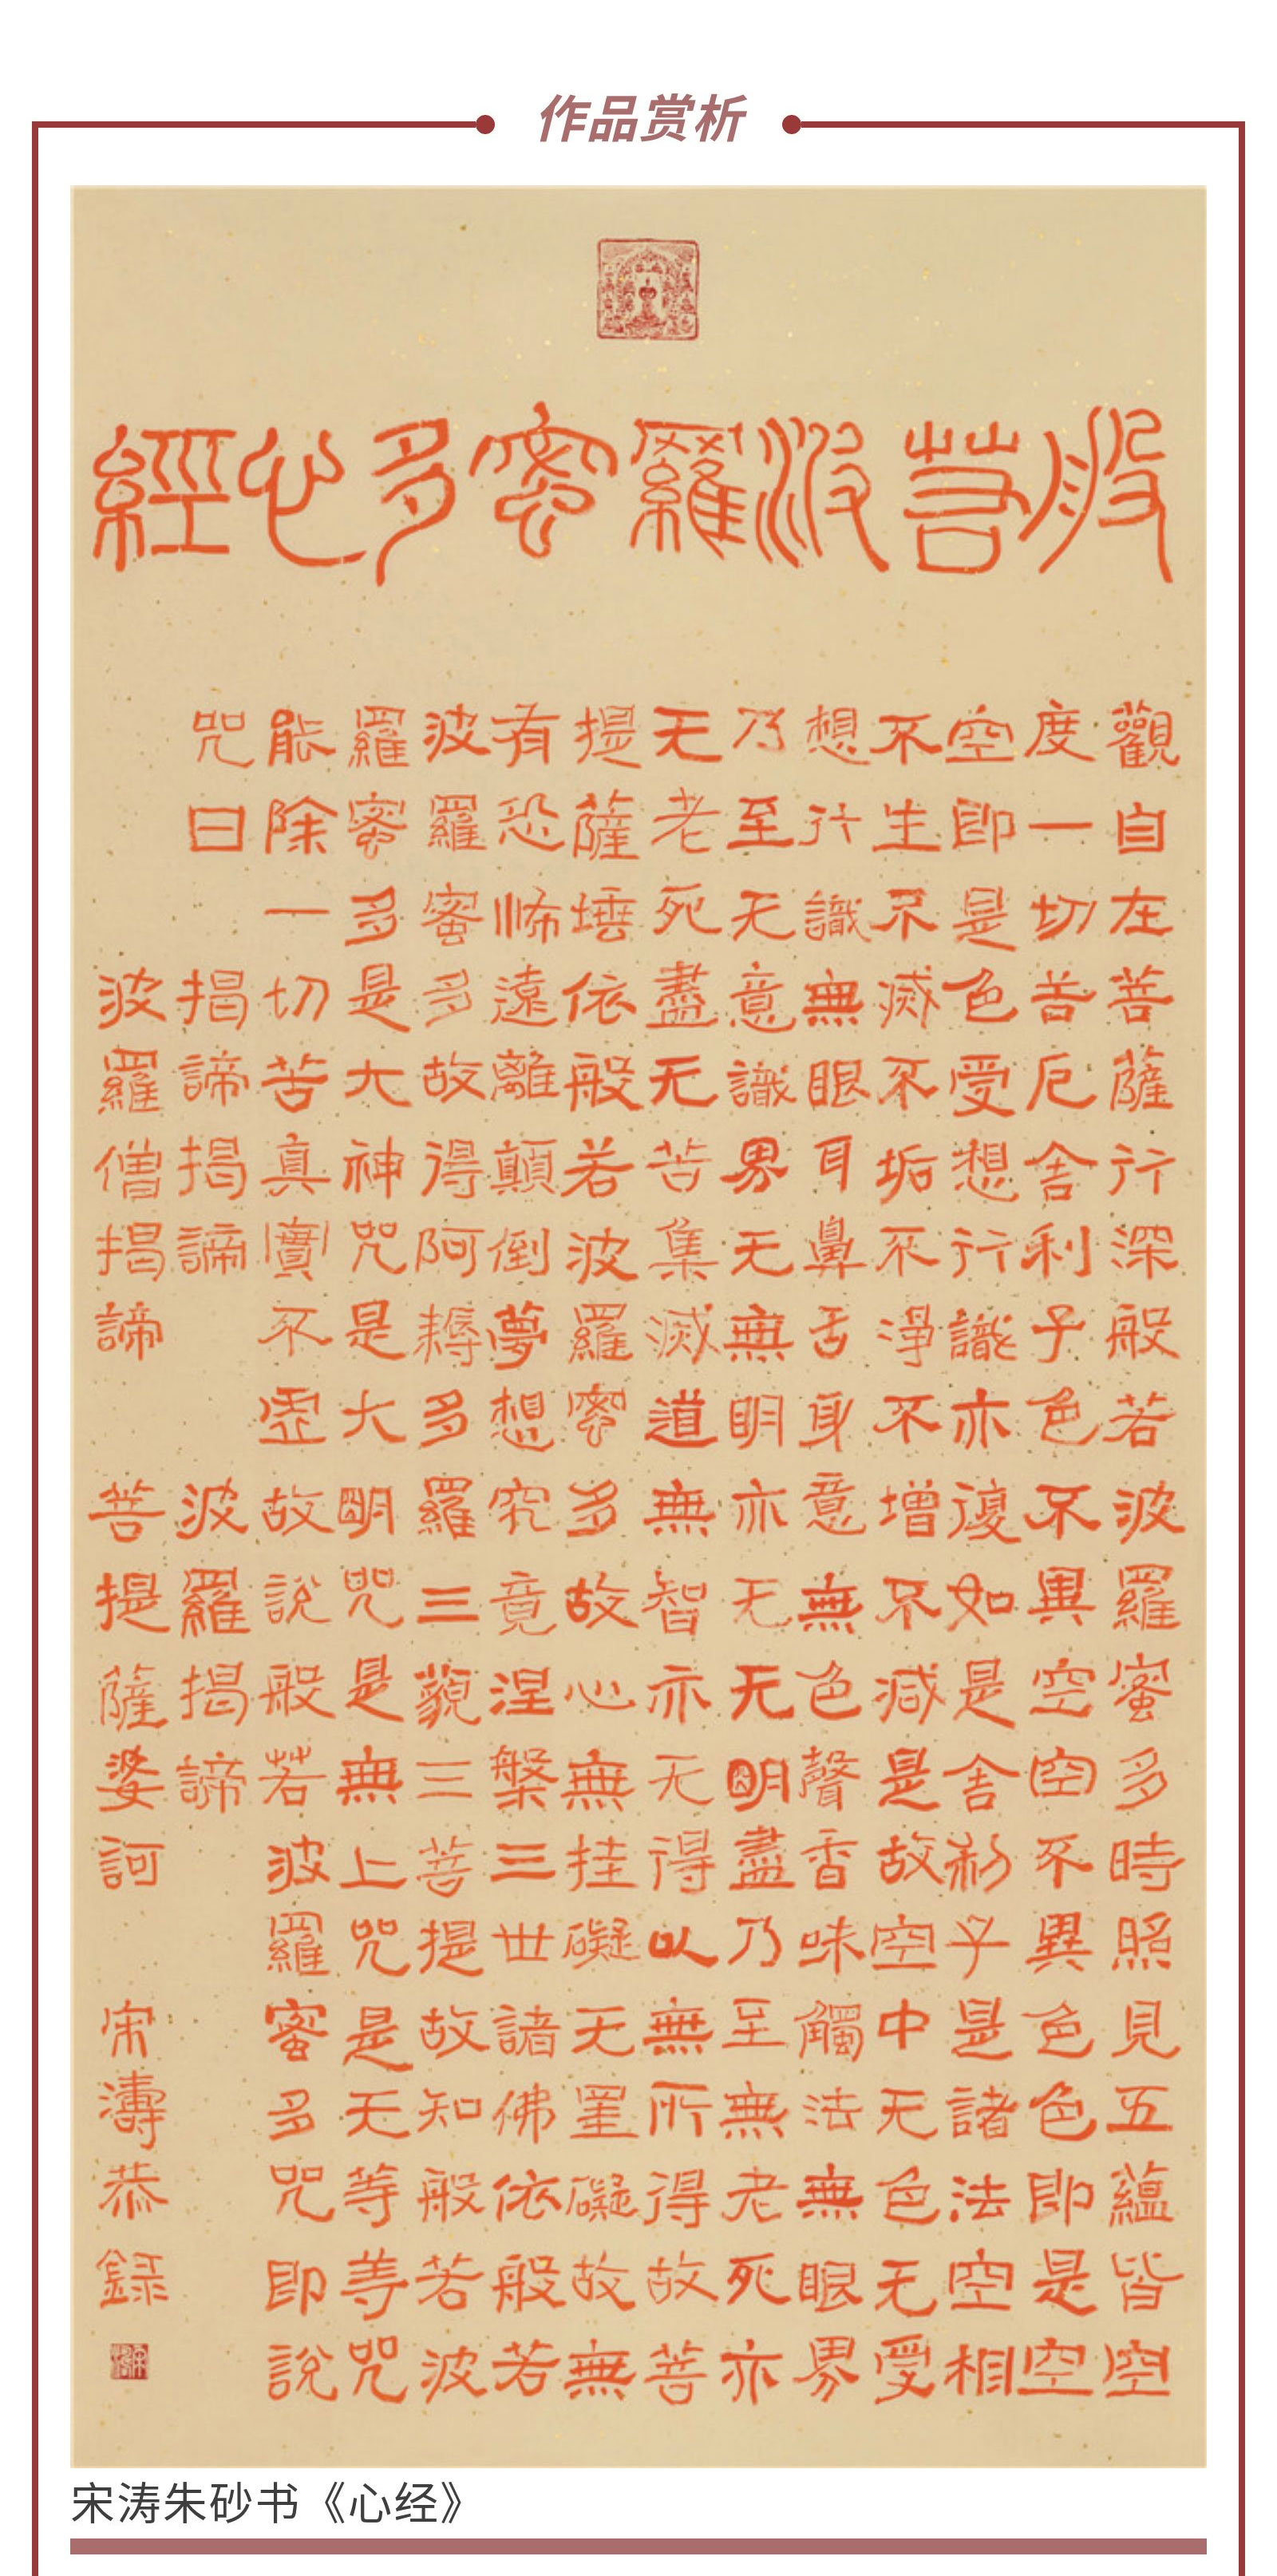 作品赏析
般若波羅蜜多心經
觀自在菩薩行深般若波羅蜜多時照見五蘊皆空
度一切苦厄舍利子色不異空空不異色色即是空
空即是色受想行識亦復如是舍利子是諸法空相
不生不滅不垢不淨不增不減是故空中无色无受
想行識無眼耳鼻舌身意無色聲香味觸法無眼界
乃至无意識界无無明亦无无明盡乃至無老死亦
无老死盡无苦集滅道無智亦无得以無所得故菩
提薩埵依般若波羅蜜多故心無挂礙无罣礙故無
有恐怖遠離顛倒夢想究竟涅槃三世諸佛依般若
波羅蜜多故得阿耨多羅三藐三菩提故知般若波
羅蜜多是大神咒是大明咒是無上咒是无等等咒
能除一切苦真實不虛故說般若波羅蜜多咒即說
咒曰 揭諦揭諦 波羅揭諦
波羅僧揭諦 菩提薩婆訶 宋濤恭録
宋涛朱砂书《心经》